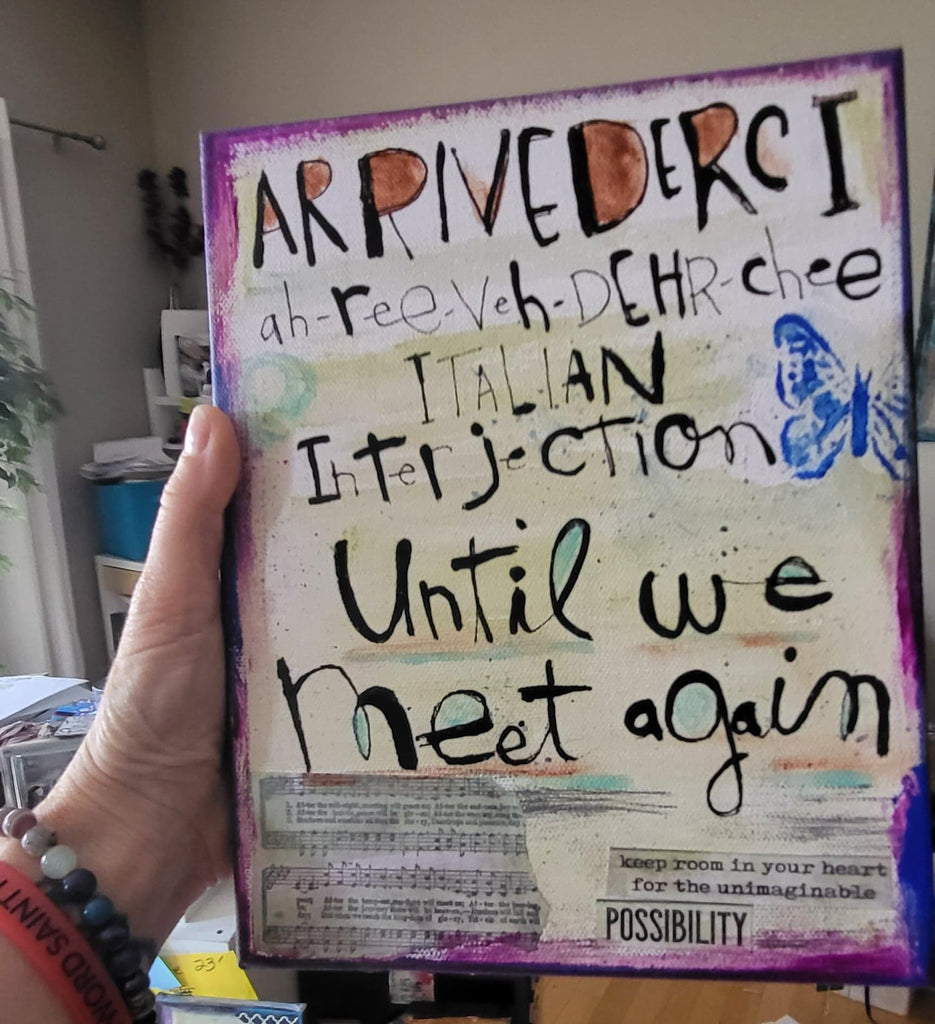 ARRIVEDERCI
ah-ree-veh-DEHR-chee
ITALIAN
Interjection
Until we
meet again
keep room in your heart
for the unimaginable
POSSIBILITY
WORD SAINT
23'